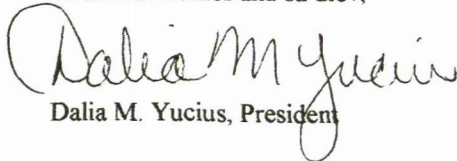 Dalia M Yucius
Dalia M. Yucius, President